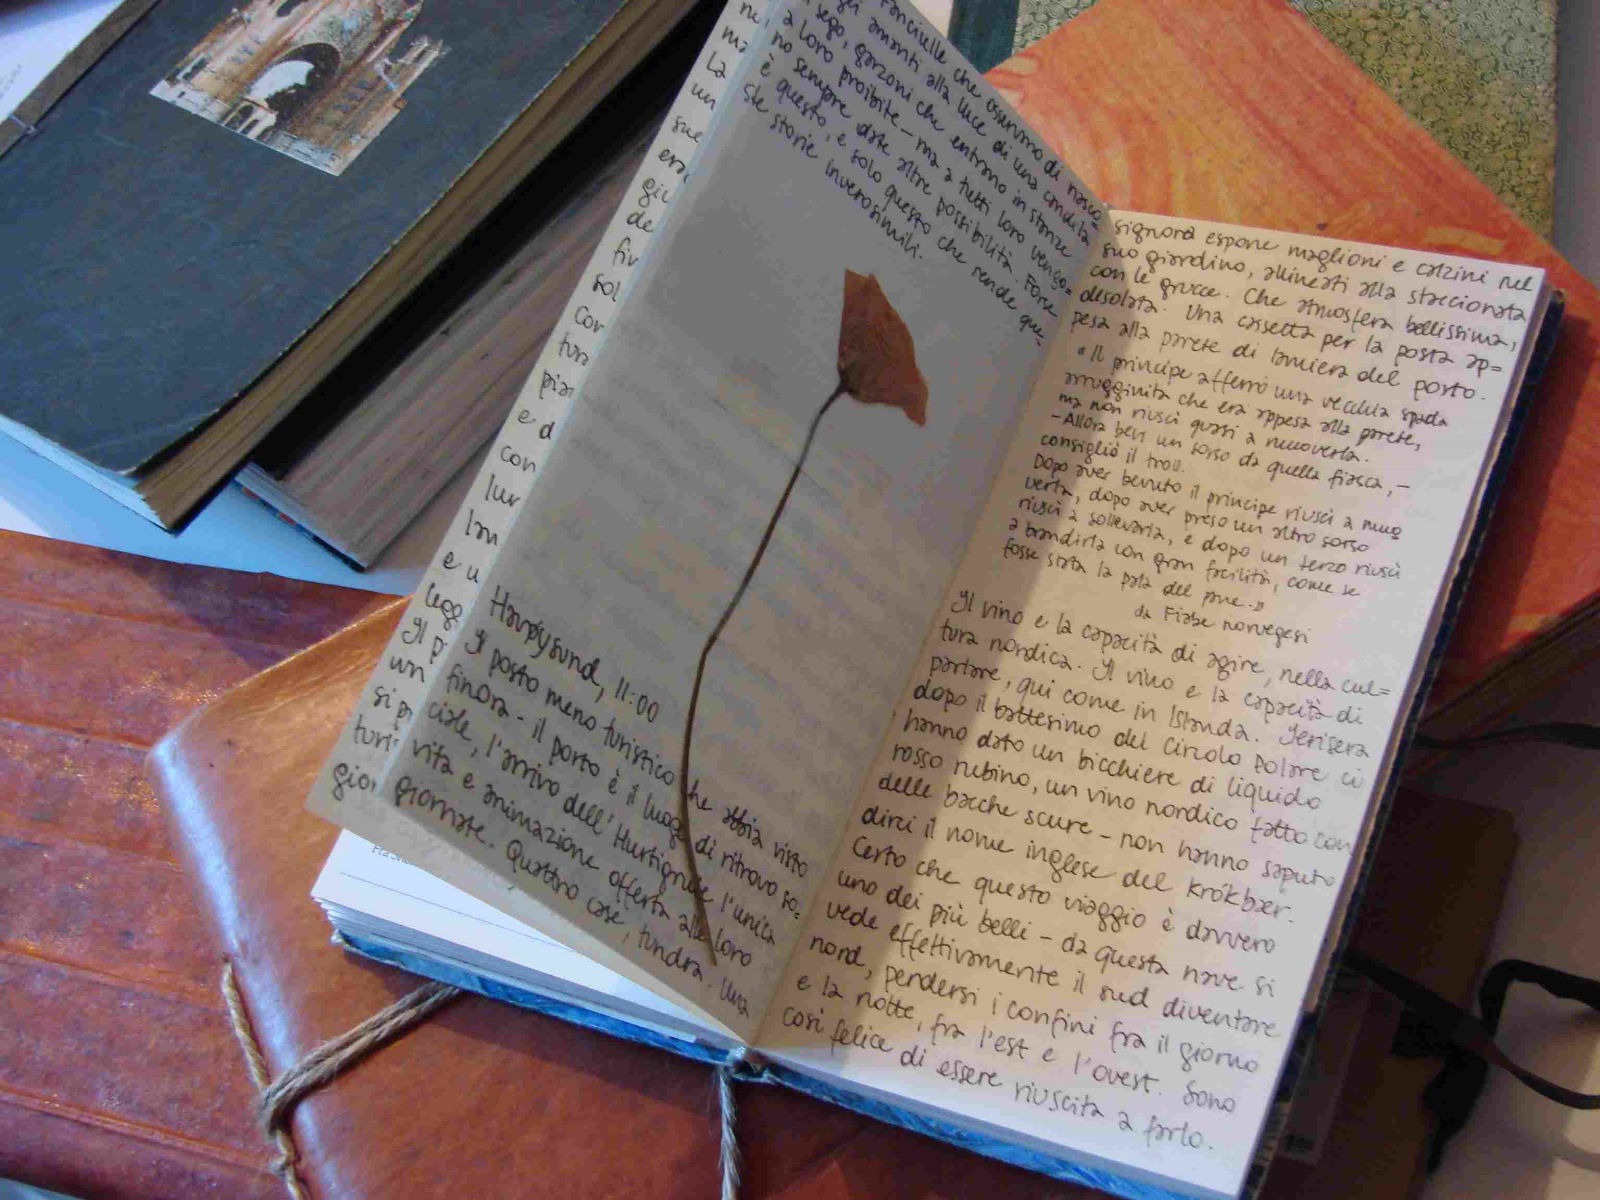 fanciulle che osservano di nasco=
gli amanti alla luce di una candela
sego, garzoni che entrano in stanze
a loro proibite - ma a tutti loro vengo=
no sempre date altre possibilità. Forse
è questo, e solo questo che rende que=
ste storie inverosimili.
Havøysund, 11:00
Il posto meno turistico che abbia visto
finora - il porto è il luogo di ritrovo so=
ciale, l'arrivo dell'Hurtigrute l'unica
vita e animazione offerta alle loro
giornate. Quattro case, tundra. Una
signora espone maglioni e calzini nel
suo giardino, allineati alla staccionata
con le grucce. Che atmosfera bellissima,
desolata. Una cassetta per la posta ap=
pesa alla parete di lamiera del porto.
"Il principe afferrò una vecchia spada
arrugginita che era appesa alla parete,
ma non riuscì quasi a muoverla.
-Allora bevi un sorso da quella fiasca,-
consigliò il troll.
Dopo aver bevuto il principe riuscì a muo
verla, dopo aver preso un altro sorso
riuscì a sollevarla, e dopo un terzo riuscì
a brandirla con gran facilità, come se
fosse stata la pala del pane."
da Fiabe norvegesi
Il vino e la capacità di agire, nella cul=
tura nordica. Il vino e la capacità di
parlare, qui come in Islanda. Ierisera
dopo il battesimo del Circolo Polare ci
hanno dato un bicchiere di liquido
rosso rubino, un vino nordico fatto con
delle bacche scure - non hanno saputo
dirci il nome inglese del krókbær.
Certo che questo viaggio è davvero
uno dei più belli - da questa nave si
vede effettivamente il sud diventare
nord, perdersi i confini fra il giorno
e la notte, fra l'est e l'ovest. Sono
così felice di essere riuscita a farlo.
ma
La
un
sue
giu
de
sol
e d
con
e u
un